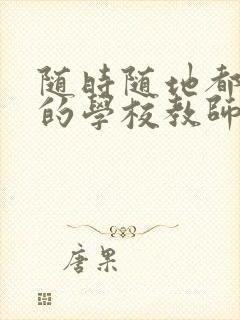 随時随地都
的學校教師
唐果